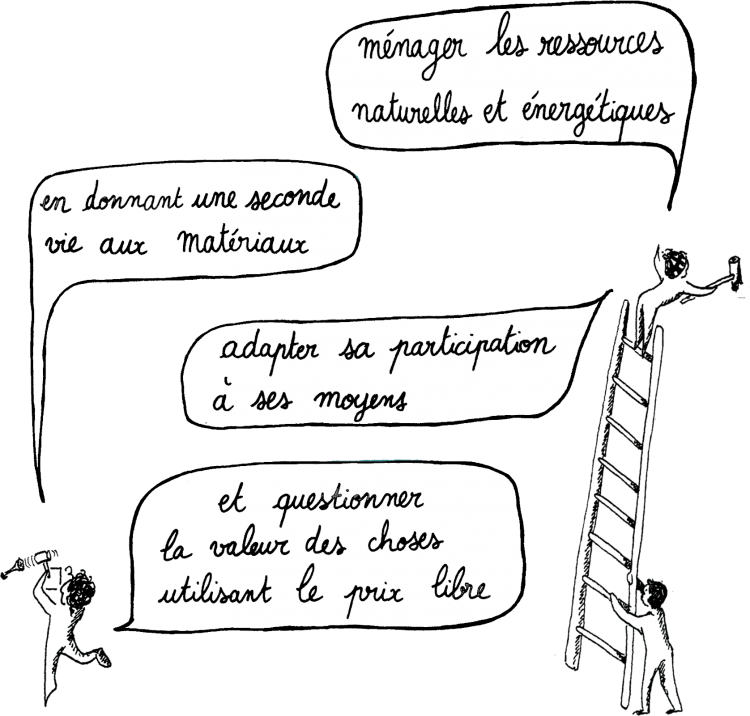 ménager les ressources
naturelles et énergétiques
en donnant une seconde
vie aux matériaux
adapter sa participation
à ses moyens
et questionner
la valeur des choses
utilisant le prix libre